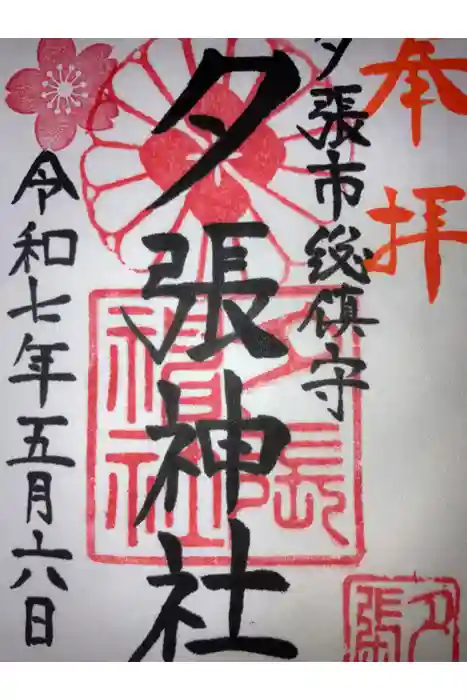 奉拝
夕張市総鎮守
夕張神社
令和七年五月六日
夕張
神社